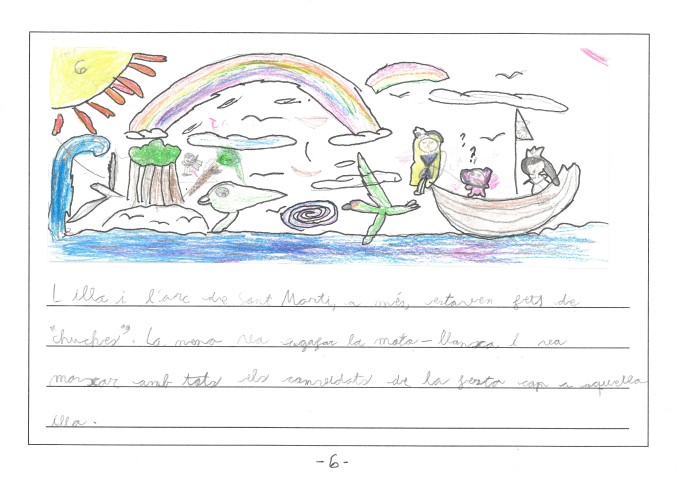 6
? ? ?
L illa i l'arc de Sant Marti, a més, estaven fets de
"chuches". La nena va agafar la moto-llanxa I va
marxar amb tots els convidats de la festa cap a aquella
illa.
-6-